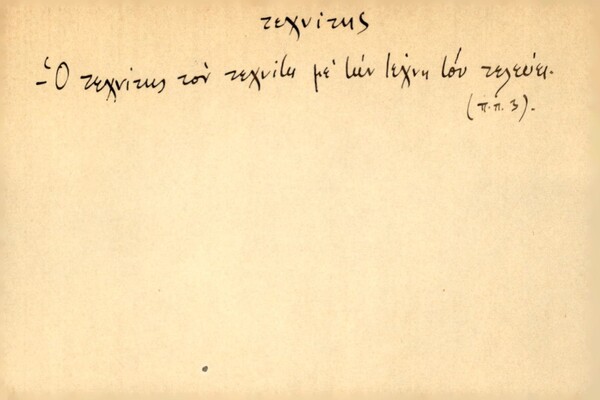 τεχνίτης
- Ὁ τεχνίτης τὸν τεχνίτη μὲ τὴν τέχνη τόν τελεύει.
(π.π. 3).